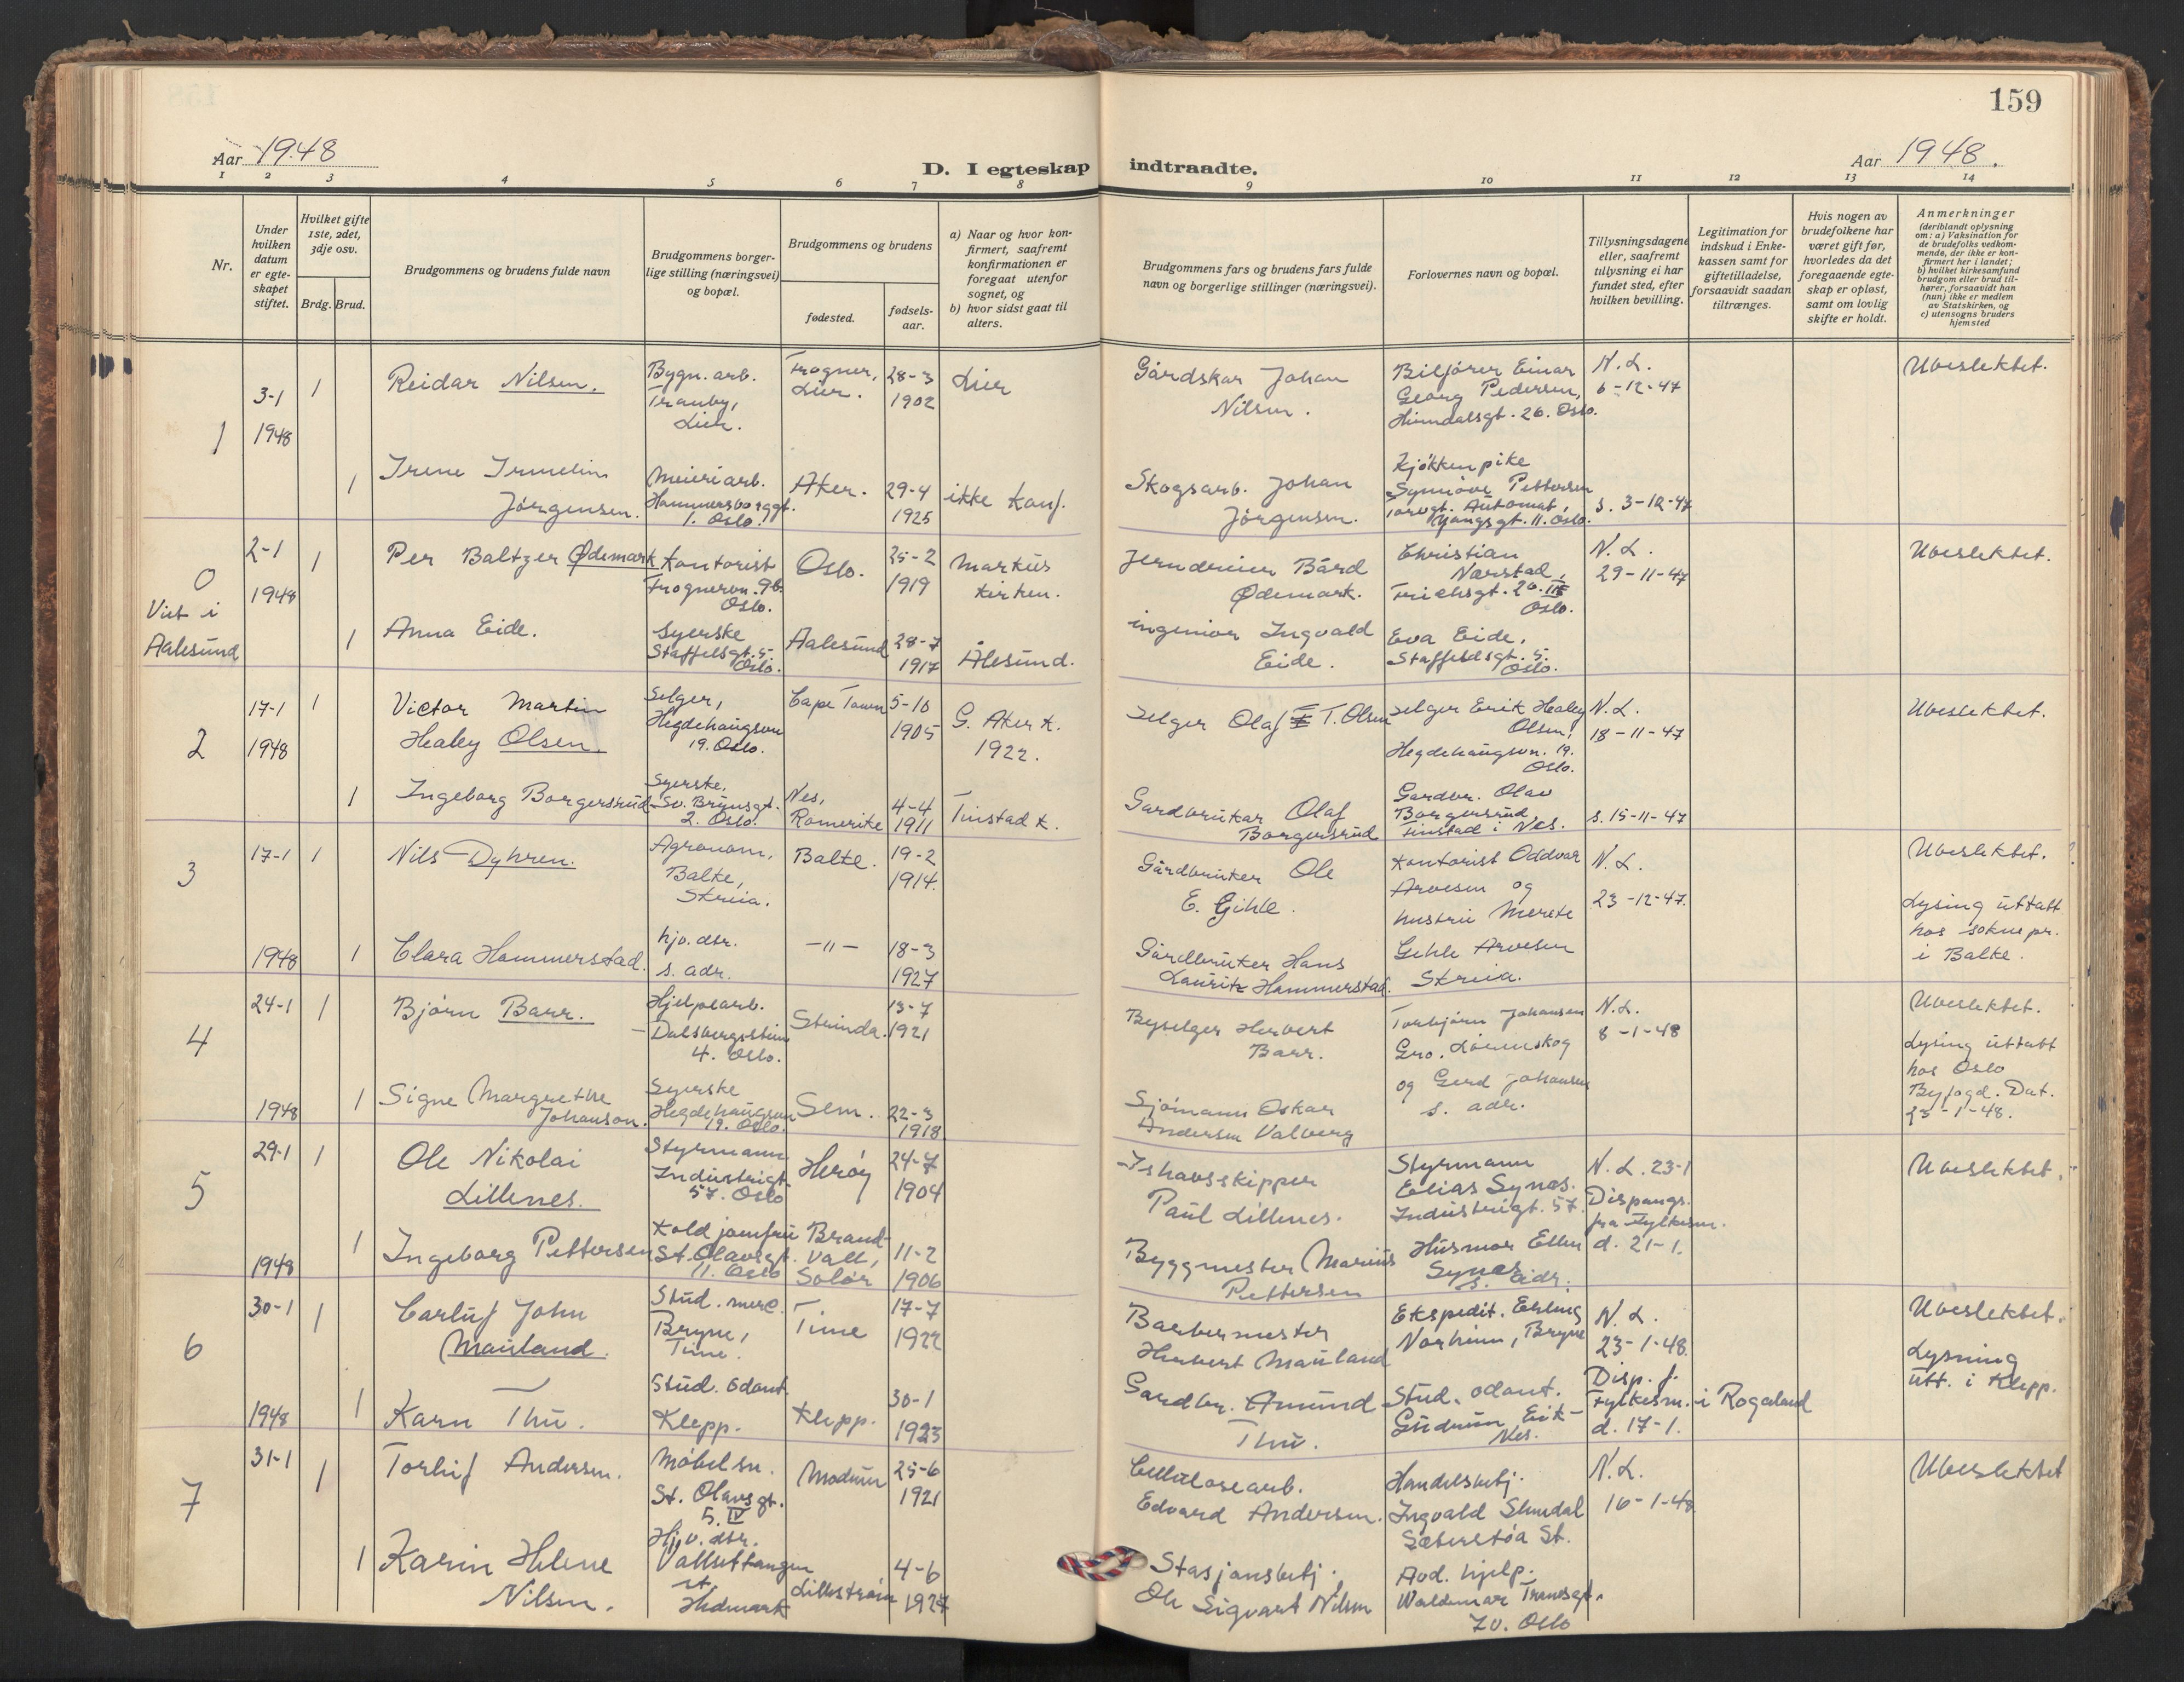 159
Aar 1948
D. I egteskap indtraadte.
Aar 1948.
1 2 3 4 5 6 7 8 9 10 11 12 13 14
Nr.
Under hvilken datum er egte-skapet stiftet.
Hvilket gifte 1ste, 2det, 3dje osv.
Brdg. Brud.
Brudgommens og brudens fulde navn
Brudgommens borger-lige stilling (næringsvei) og bopæl.
Brudgommens og brudens
fødested.
fødsels-aar.
a) Naar og hvor kon-firmert, saafremt konfirmationen er foregaat utenfor sognet, og
b) hvor sidst gaat til alters.
Brudgommens fars og brudens fars fulde navn og borgerlige stillinger (næringsvei).
Forlovernes navn og bopæl.
Tillysningsdagene eller, saafremt tillysning ei har fundet sted, efter hvilken bevilling.
Legitimation for indskud i Enke-kassen samt for giftetilladelse, forsaavidt saadan tiltrænges.
Hvis nogen av brudefolkene har været gift før, hvorledes da det foregaaende egte-skap er opløst, samt om lovlig skifte er holdt.
Anmerkninger
(deriblandt oplysning om: a) Vaksination for de brudefolks vedkom-mende, der ikke er kon-firmert her i landet;
b) hvilket kirkesamfund brudgom eller brud til-hører, forsaavidt han (hun) ikke er medlem av Statskirken, og
c) utensogns bruders hjemsted
1
3-1
1948
1
Reidar Nilsen.
Bygn. arb.
Tranby,
Lier.
Frogner,
Lier.
28-3
1902
Lier
Gårdskar Johan
Nilsen.
Biljører Einar
Georg Pedersen,
Heimdalsgt. 26. Oslo.
N. L.
6-12-47
Ubeslektet.
1
Irene Irmelin
Jørgensen.
Meieriarb.
Hammersborggt.
1. Oslo.
Aker.
29-4
1925
ikke konf.
Skogsarb. Johan
Jørgensen.
Kjøkkenpike
Synnøve Pettersen
Torvgt. Automat,
Youngsgt. 11. Oslo.
s. 3-12-47
0
Viet i
Aalesund
2-1
1948
1
Per Baltzer Ødemark
Kontorist
Frognervn. 9b.
Oslo.
Oslo.
25-2
1919
Markus
kirken.
Jerndreier Bård
Ødemark.
Christian
Nærstad,
Frichsgt. 20. III
Oslo.
N. L.
29-11-47
Ubeslektet.
1
Anna Eide.
Syerske
Staffelsgt. 5.
Oslo.
Aalesund
28-7
1917
Ålesund.
ingeniør Ingvald
Eide.
Eva Eide,
Staffeldsgt. 5.
Oslo.
2
17-1
1948
1
Victor Martin
Healey Olsen.
Selger,
Hegdehaugsvn
19. Oslo.
Cape Town
5-10
1905
G. Aker k.
1922.
Selger Olaf T. Olsen
Selger Erik Healey
Olsen,
Hegdehaugsvn. 19.
Oslo.
N. L.
18-11-47
Ubeslektet.
1
Ingeborg Borgersrud
Syerske,
Sv. Brunsgt.
2. Oslo.
Nes,
Romerike
4-4
1911
Finstad k.
Gardbruker Olaf
Borgersrud
Gardbr. Olav
Borgersrud,
Finstad i Nes.
s. 15-11-47
3
17-1
1948
1
Nils Dyhren.
Agronom,
Balke,
Skreia.
Balke.
19-2
1914.
Gårdbruker Ole
E. Gihle.
Kontorist Oddvar
Arvesen og
hustru Merete
Gihle Arvesen
Skreia.
N. L.
23-12-47.
Ubeslektet.
Lysing uttatt
hos soknepr.
i Balke.
1
Clara Hammerstad.
hjv. dtr.
s. adr.
-"-
18-3
1927
Gårdbruker Hans
Lauritz Hammerstad.
4
24-1
1948
1
Bjørn Barr.
Hjelpearb.
Dalsbergstien
4. Oslo.
Strinda.
13-7
1921
Byselger Herbert
Barr.
Torbjørn Johansen
Gro. Lørenskog
og Gerd Johansen
s. adr.
N. L.
8-1-48
Ubeslektet.
Lysing uttatt
hos Oslo
Byfogd. Dat.
23-1-48.
1
Signe Margrethe
Johanson.
Syerske
Hegdehaugsvn
19. Oslo.
Sem.
22-3
1918
Sjømann Oskar
Andersen Valberg
5
29-1
1948
1
Ole Nikolai
Lillenes.
Styrmann
Industrigt.
57. Oslo
Herøy
24-7
1904
Ishavsskipper
Paul Lillenes.
Styrmann
Elias Synes.
Industrigt. 57.
N. L. 23-1
Dispangs.
fra Fylkesm.
d. 21-1.
Ubeslektet.
1
Ingeborg Pettersen
Koldjomfru
St. Olavsgt.
11. Oslo
Brand-
vall,
Solør
11-2
1906
Byggmester Marius
Pettersen
Husmor Ellen
Synes
s. adr.
6
30-1
1948
1
Carluf John
Mauland.
Stud. merc.
Bryne,
Time.
Time
17-7
1922
Barbermester
Herbert Mauland
Ekspedit. Erling
Norheim, Bryne
N. L.
23-1-48.
Disp. f.
Fylkesm. i Rogaland
d. 17-1.
Ubeslektet.
Lysning
utt. i Klepp.
1
Karn Thu.
Stud. odont.
Klepp.
Klepp.
30-1
1923
Gardbr. Amund
Thu.
Stud. odont.
Gudrun Eik-
Nes.
7
31-1
1
Torleif Andersen.
Møbelsn.
St. Olavsgt.
5. IV
Modum
25-6
1921
Cellulosearb.
Edvard Andersen.
Handelsbetj.
Ingvald Slemdal
Sæterstøa St.
N. L.
16-1-48
Ubeslektet
1
Karin Helene
Nilsen.
Hjv. dtr.
Vallsettangen
st.
Hedmark
Lillestrøm
4-6
1927
Stasjonsbetj.
Ole Sigvart Nilsen
Avd. hjelp.
Waldemar Thranesgt.
70. Oslo